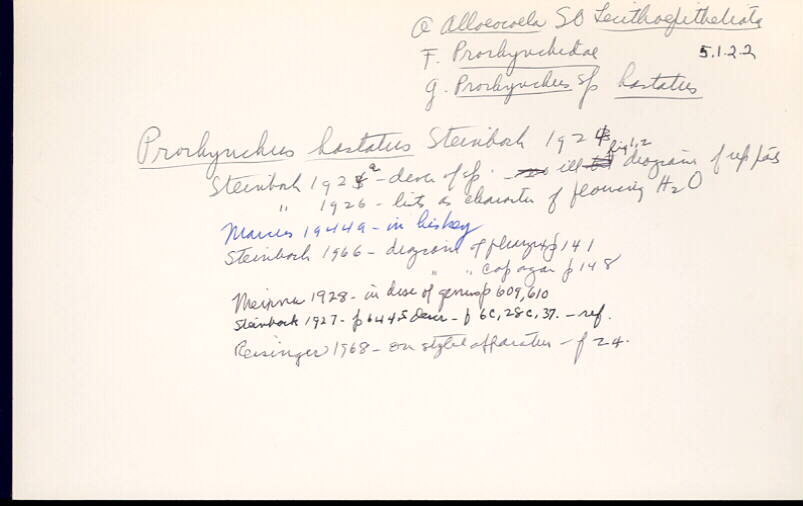 O Alloeocoela SO Lecithoepitheliata
F. Prorhynchidae 5.1.2.2
g. Prorhynchus sp hastatus
Prorhynchus hastatus Steinbock 1924
fig 1, 2
Steinbock 192 a - descr of sp. - ill diagrams of rep
" 1926 - lists as character of flowing H2O
Marcus 1944a - in key
Steinbock 1966 - diagram of pharynx p 141
" " cop organ p 148
Meixner 1928 - in disc of genus p 609, 610
Steinbock 1927 - p descr - ref.
Reisinger 1968 - on stylet apparatus - p 24.